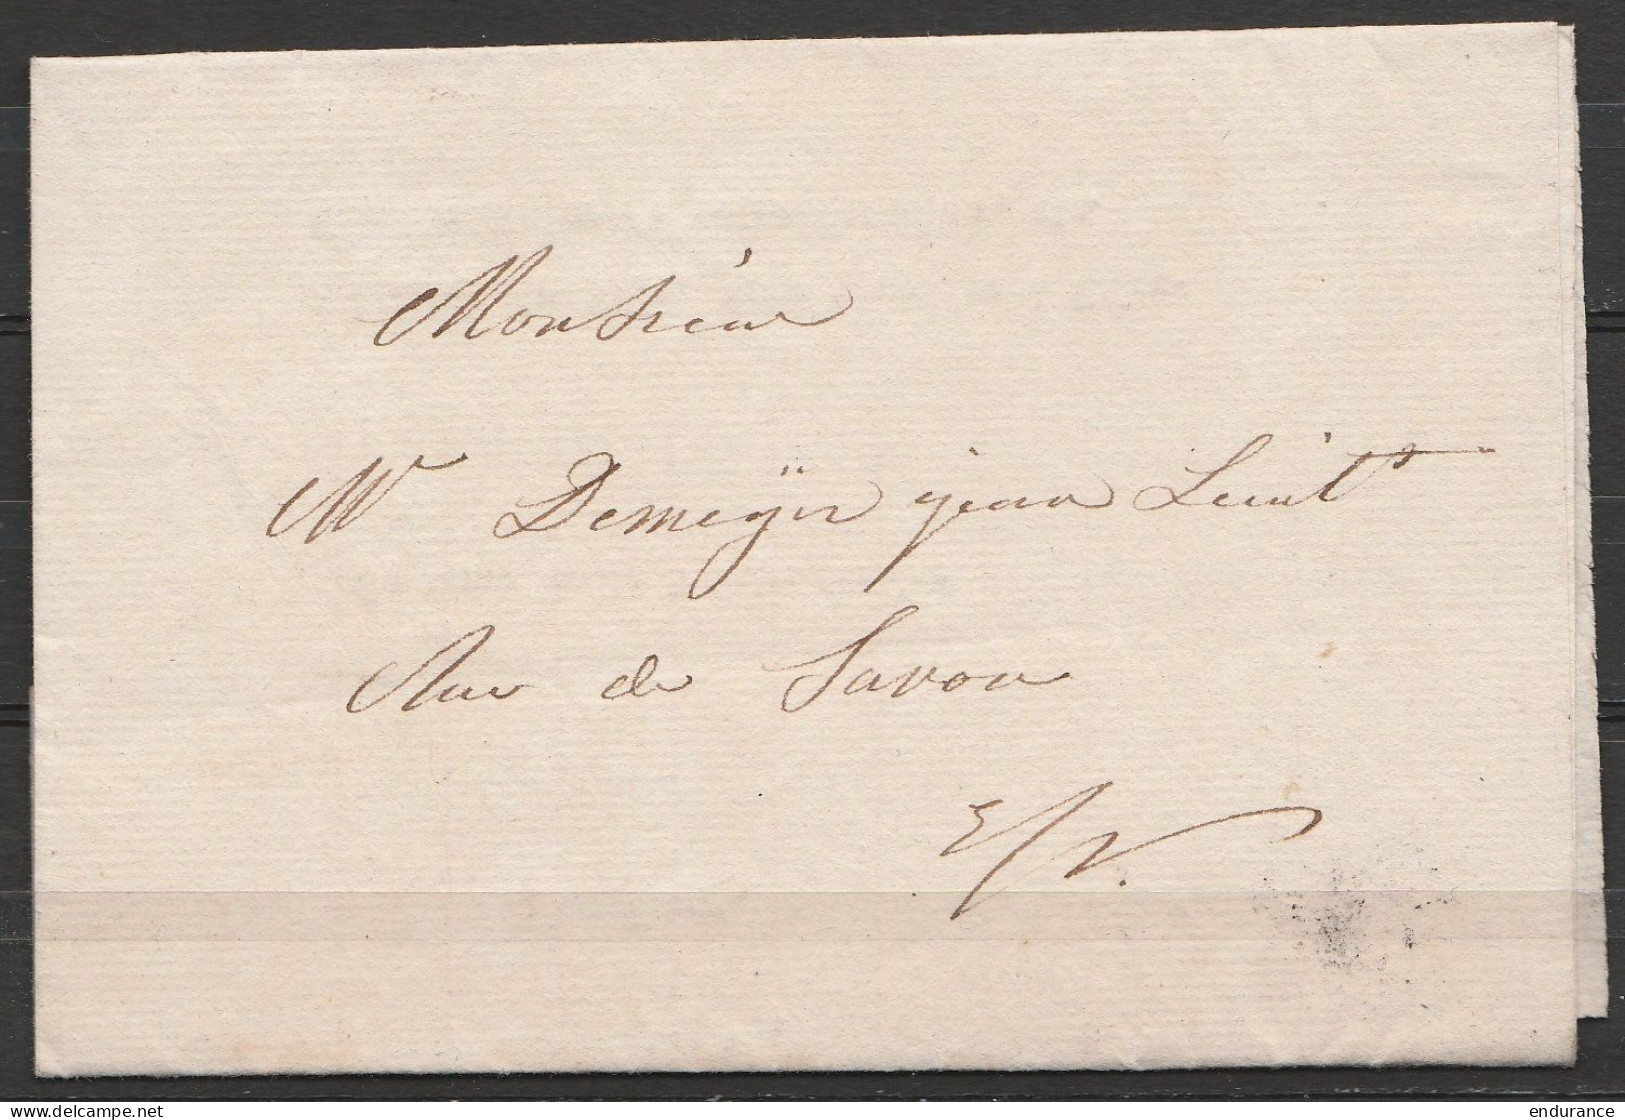 Monsieur
Mr Demeÿer jean Lieut
Rue de Savon
E/V.
delcampe.net
endurance